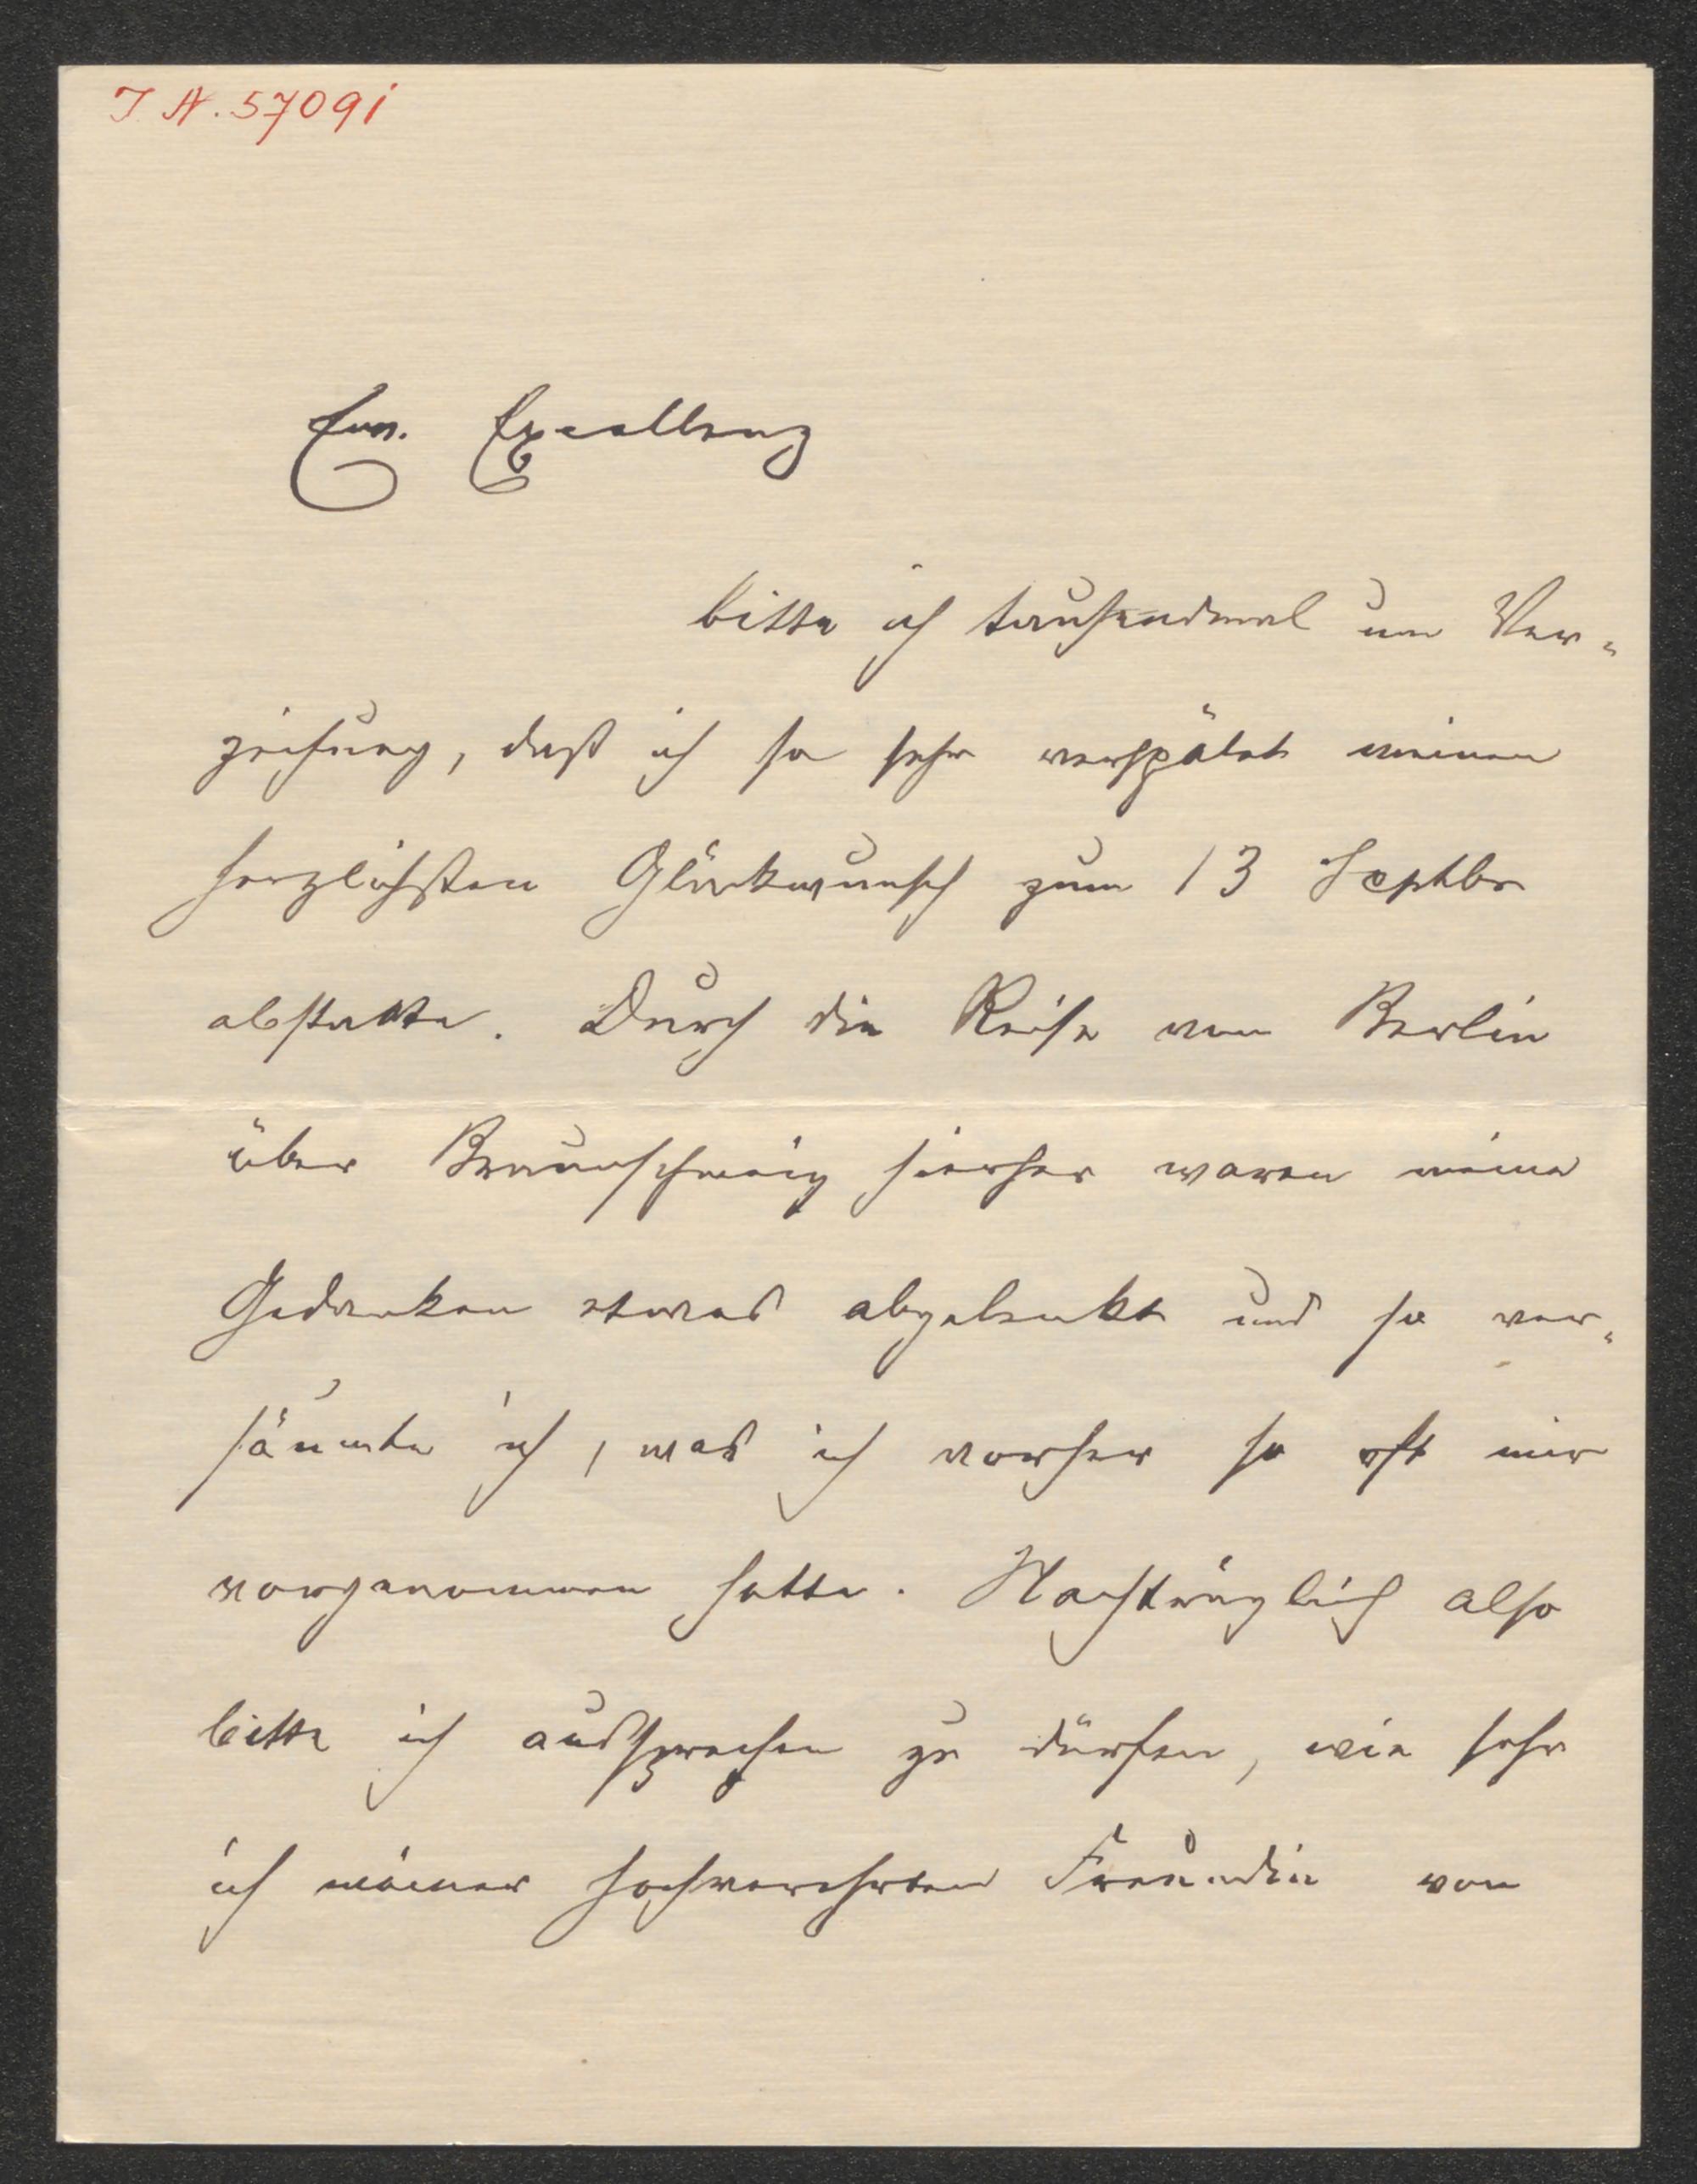 I. N. 57091
Ew. Excellenz
bitte ich tausendmal um Ver-
zeihung, daß ich so sehr verspätet meinen
herzlichsten Glückwunsch zum 13 Septbr
abstatte. Durch die Reise von Berlin
über Braunschweig hierher waren meine
Gedanken etwas abgelenkt und so ver-
säumte ich, was ich vorher so oft mir
vorgenommen hatte. Nachträglich also
bitte ich aussprechen zu dürfen, wie sehr
ich meiner hochverehrten Freundin von